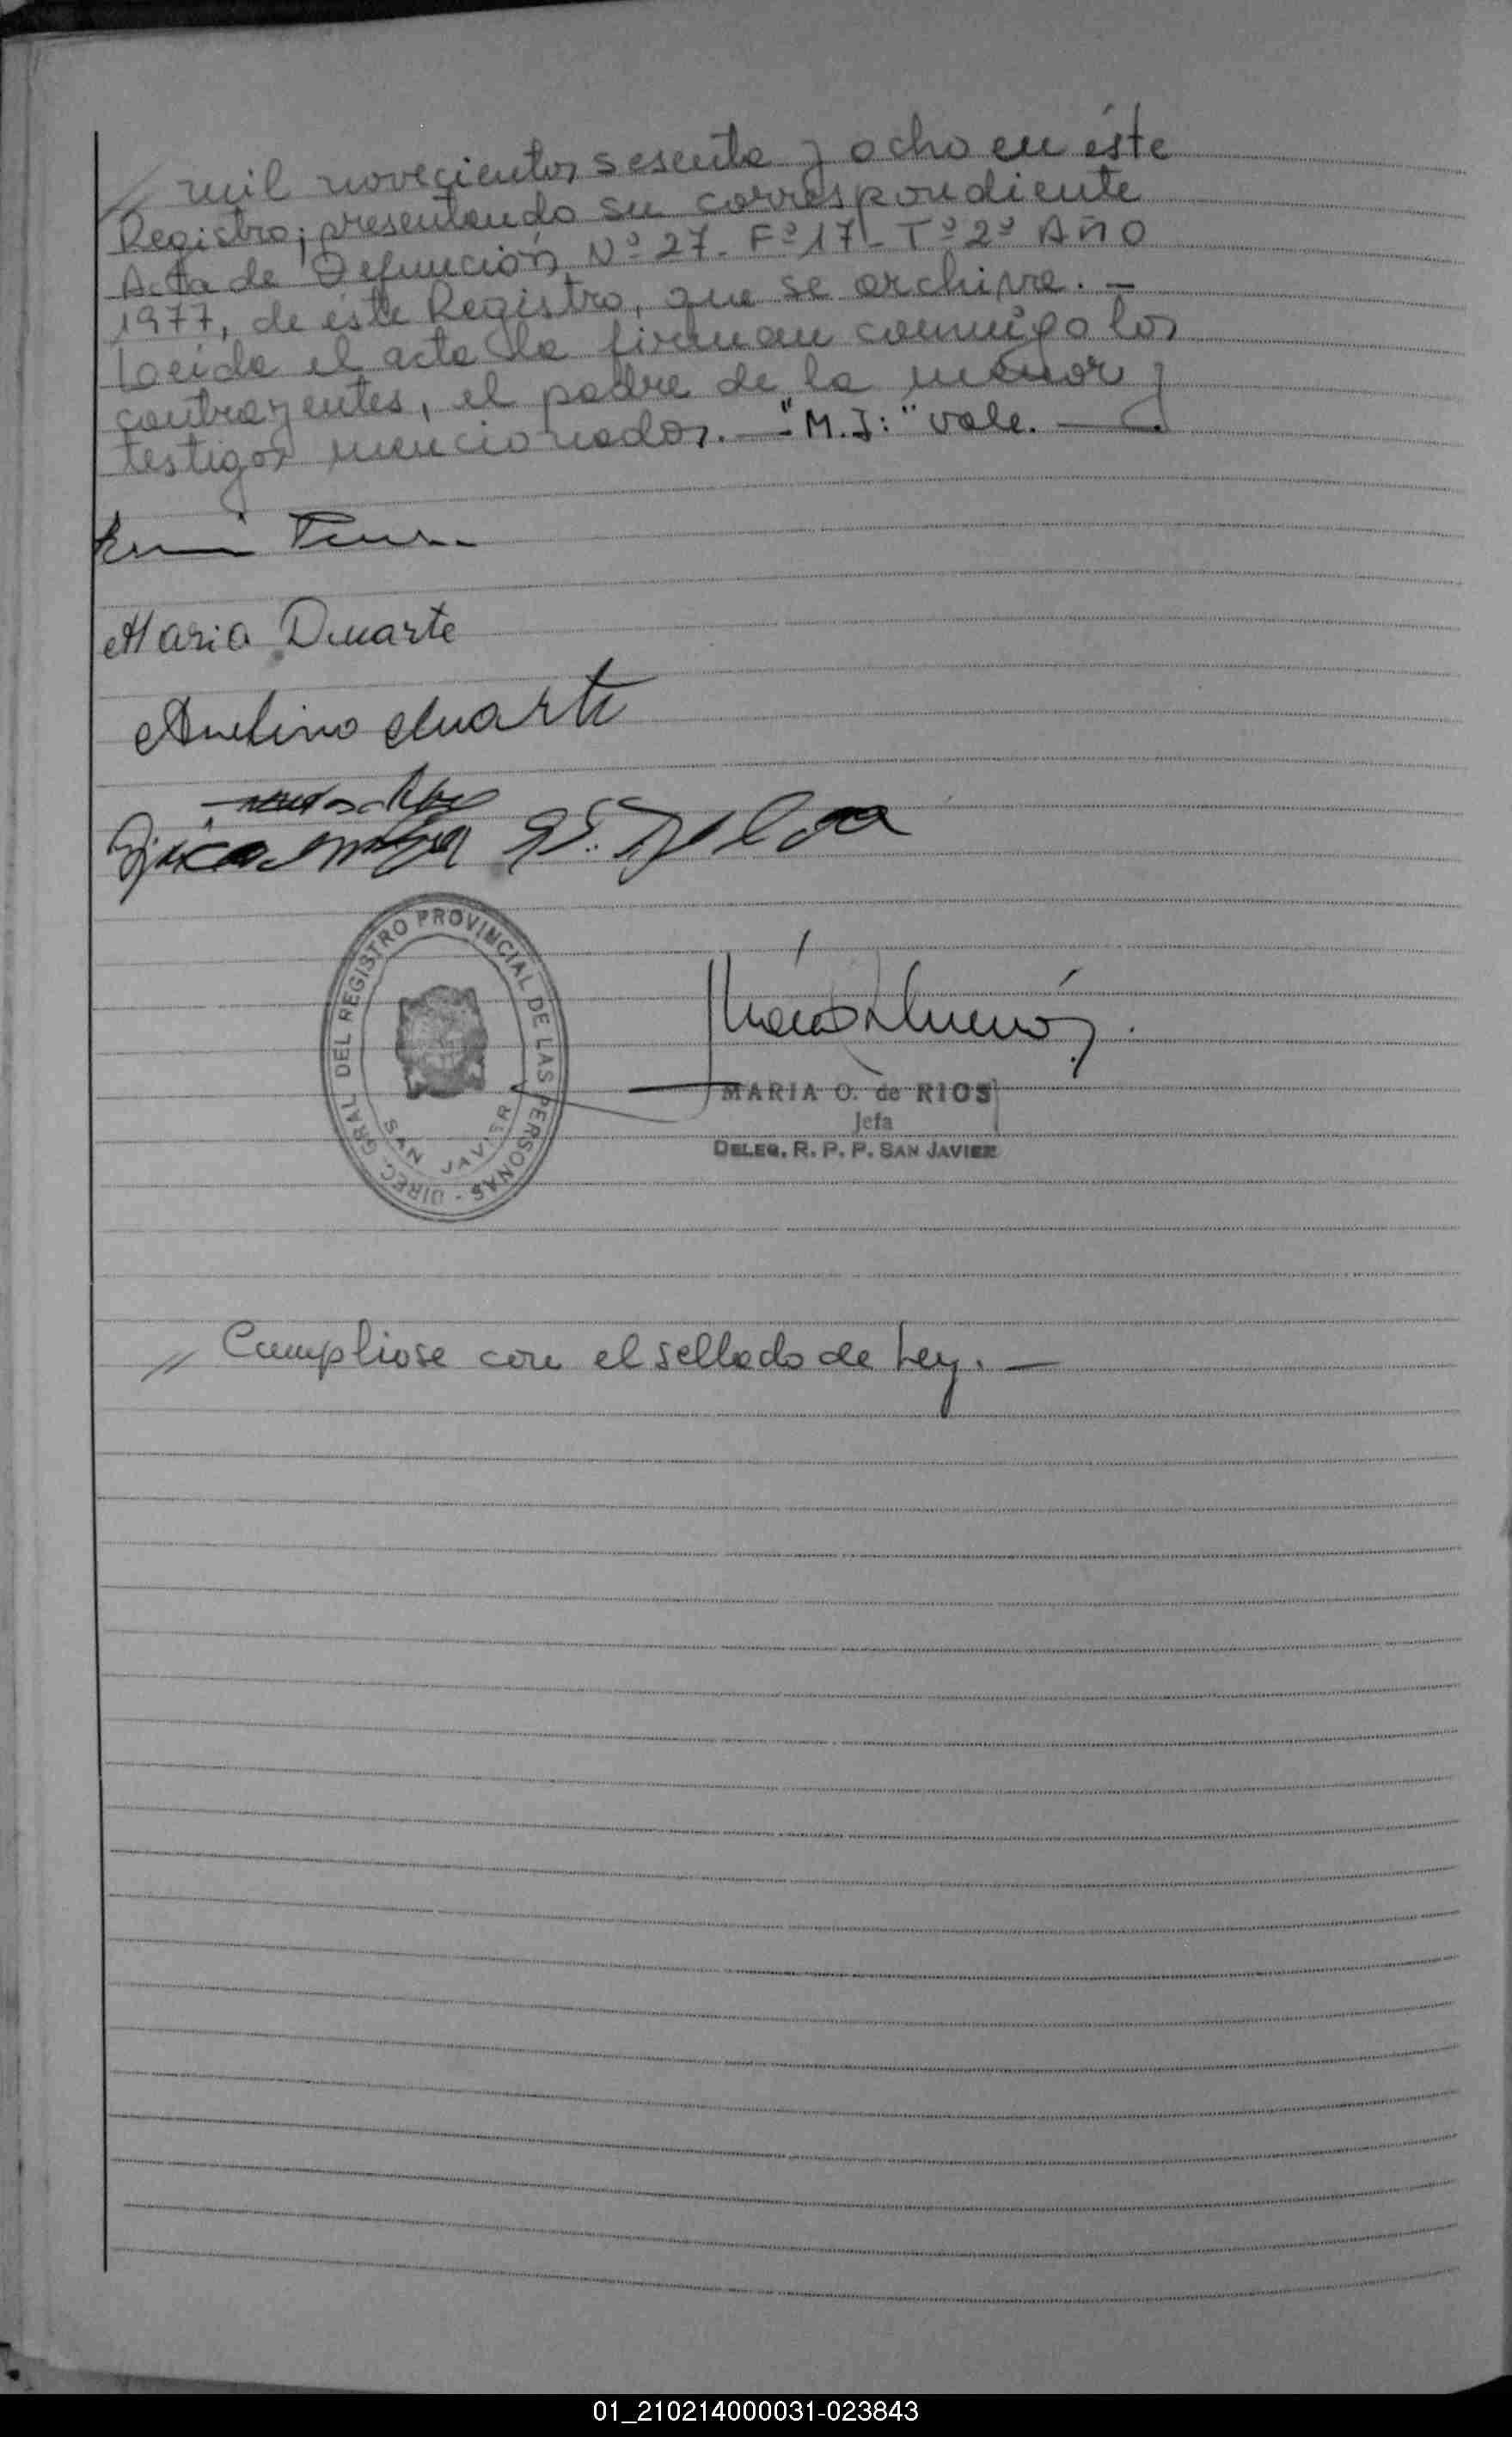 // mil novecientos sesenta y ocho en éste
Registro; presentando su correspondiente
Acta de Defunción Nº 27- Fº 17- Tº 2º Año
1977, de éste Registro, que se archiva. —
Leída el acta la firman conmigo los
contrayentes, el padre de la menor y
testigos mencionados. — "M.J:" vale. —
Maria Duarte
Avelino duarte
DIREC. GRAL. DEL REGISTRO PROVINCIAL DE LAS PERSONAS -
SAN JAVIER
MARIA O. de RIOS
Jefa
DELEG. R. P. P. SAN JAVIER
// Cumpliose con el sellado de Ley. —
01_210214000031-023843